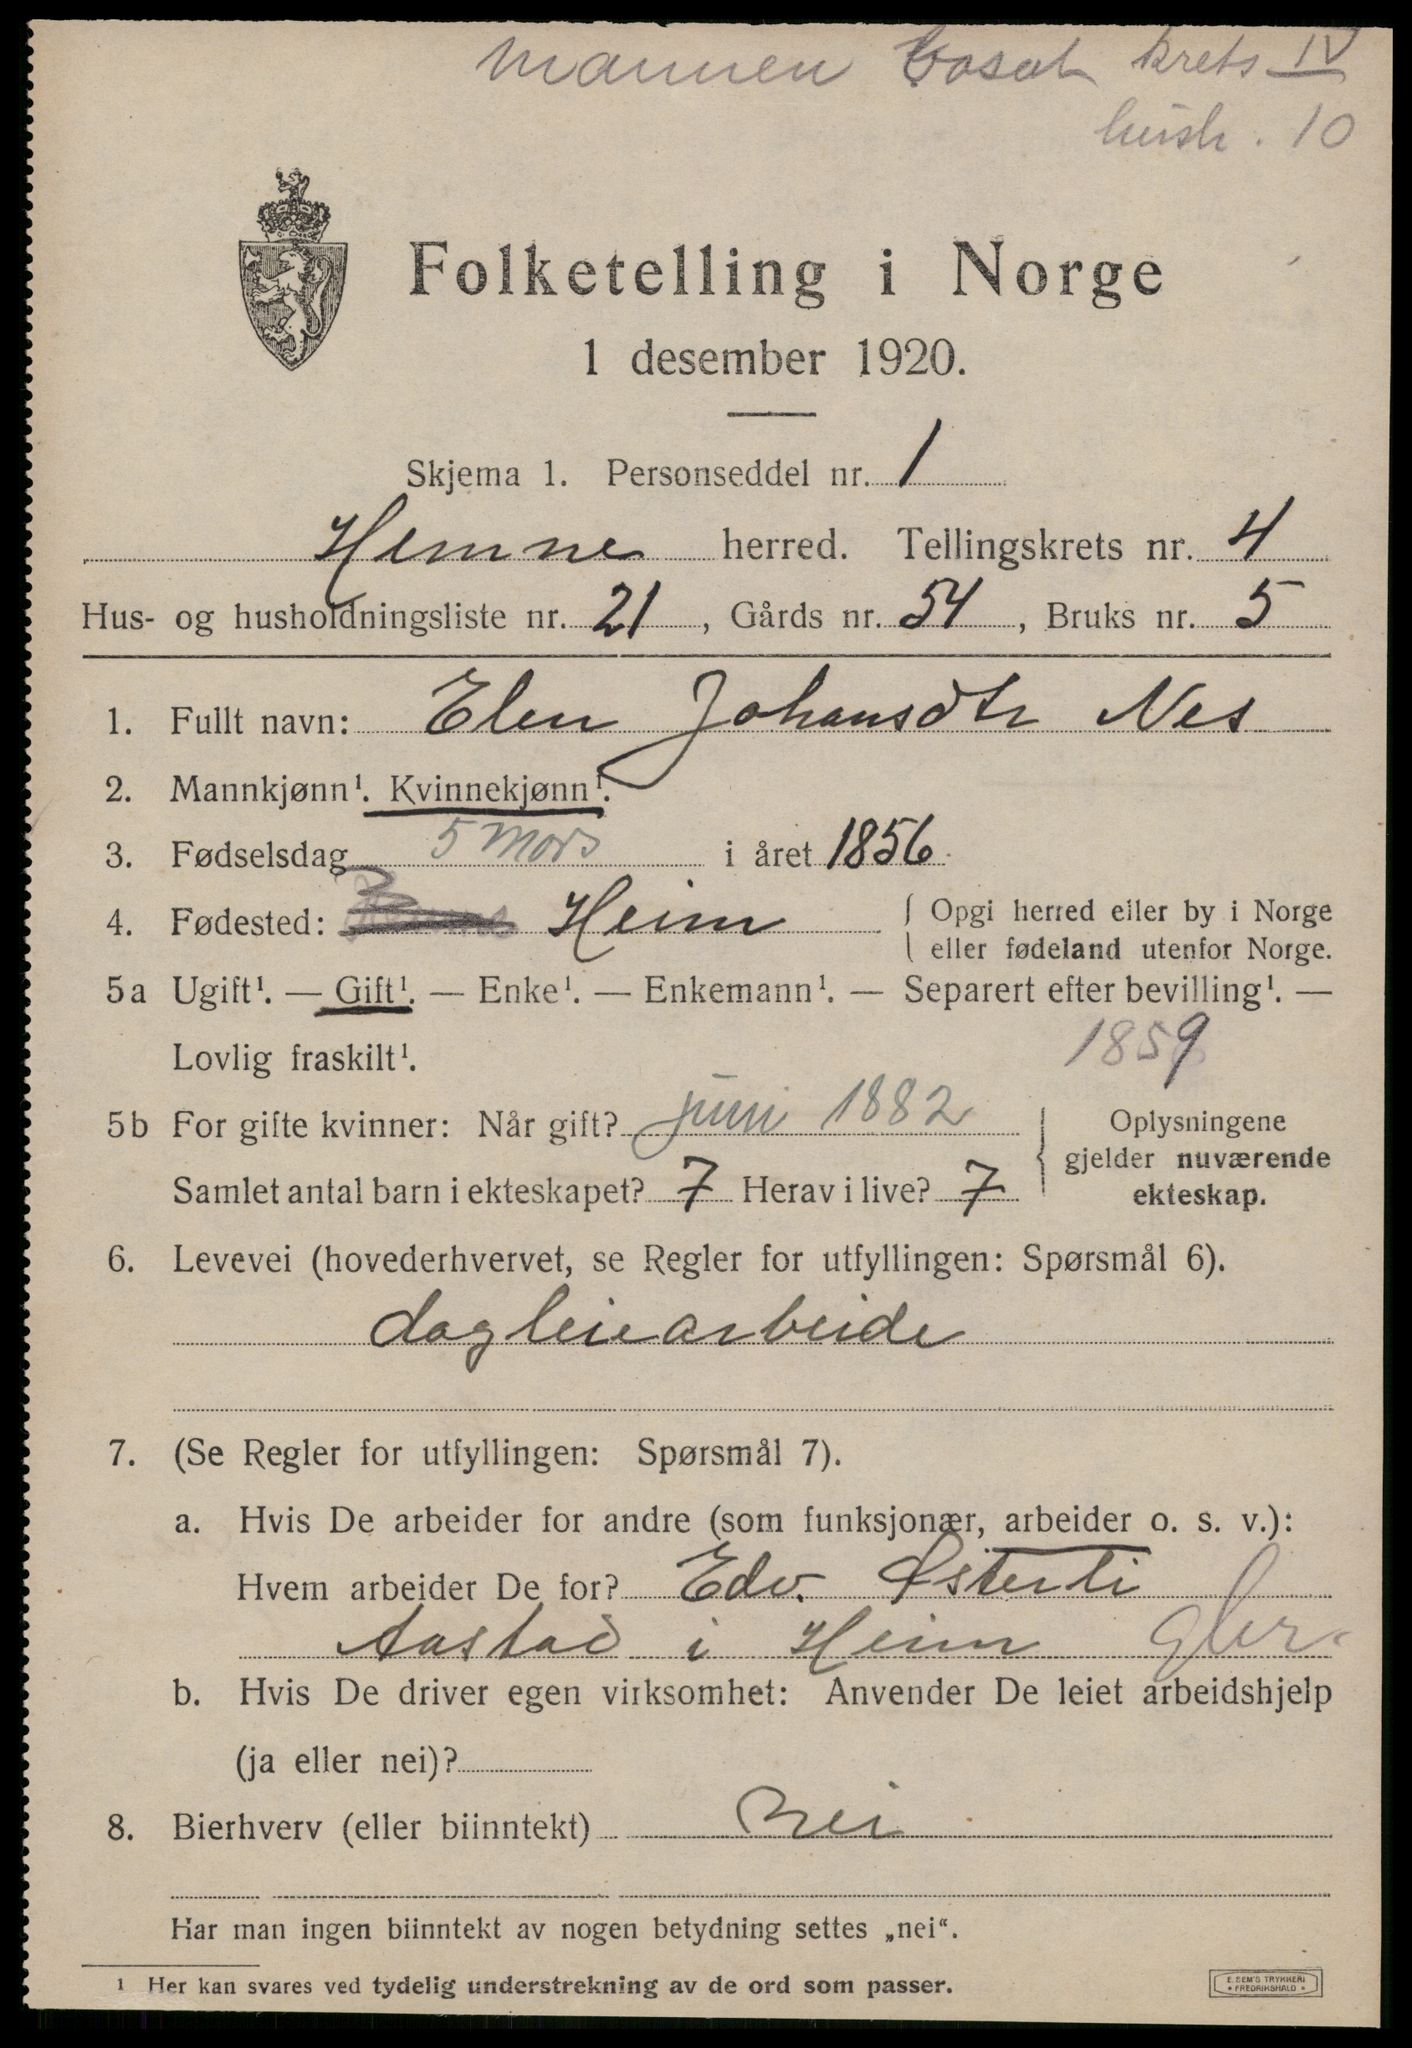 Mannen bosat krets IV
hush. 10
Folketelling i Norge
1 desember 1920.
Skjema 1. Personseddel nr. 1
Hemne herred. Tellingskrets nr. 4
Hus- og husholdningsliste nr. 21, Gårds nr. 54, Bruks nr. 5
1. Fullt navn: Elen Johansdtr Nes
2. Mannkjønn¹. Kvinnekjønn¹.
3. Fødselsdag 5 Mars i året 1856
4. Fødested: Heim { Opgi herred eller by i Norge
eller fødeland utenfor Norge.
5a Ugift¹. — Gift¹. — Enke¹. — Enkemann¹. — Separert efter bevilling¹. —
Lovlig fraskilt¹. 1859
5b For gifte kvinner: Når gift? juni 1882 { Oplysningene
gjelder nuværende
Samlet antal barn i ekteskapet? 7 Herav i live? 7 ekteskap.
6. Levevei (hovederhvervet, se Regler for utfyllingen: Spørsmål 6).
dagleiearbeide
7. (Se Regler for utfyllingen: Spørsmål 7).
a. Hvis De arbeider for andre (som funksjonær, arbeider o. s. v.):
Hvem arbeider De for? Edv. Østerli
Aastad i Heim
b. Hvis De driver egen virksomhet: Anvender De leiet arbeidshjelp
(ja eller nei)?
8. Bierhverv (eller biinntekt) Nei
Har man ingen biinntekt av nogen betydning settes „nei“.
¹ Her kan svares ved tydelig understrekning av de ord som passer.
E. SEM'S TRYKKERI
* FREDRIKSHALD *